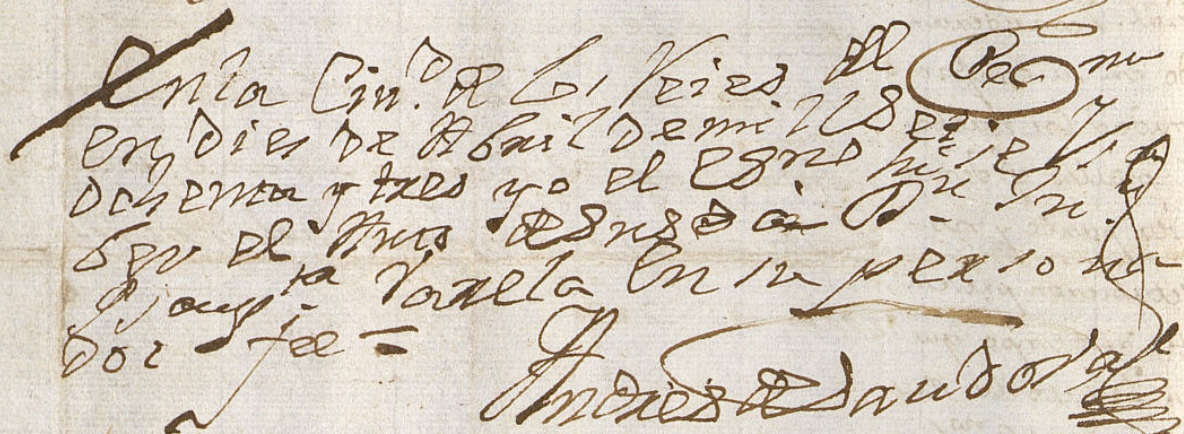 En la Ciu.d de los Reies del Peru
en Dies de Abril de mill y
ochenta y tres yo el Essno hise sa
ber el Auto â Dn Jn.
Varela En su persona
Doi fee =
Andres de Sandoval